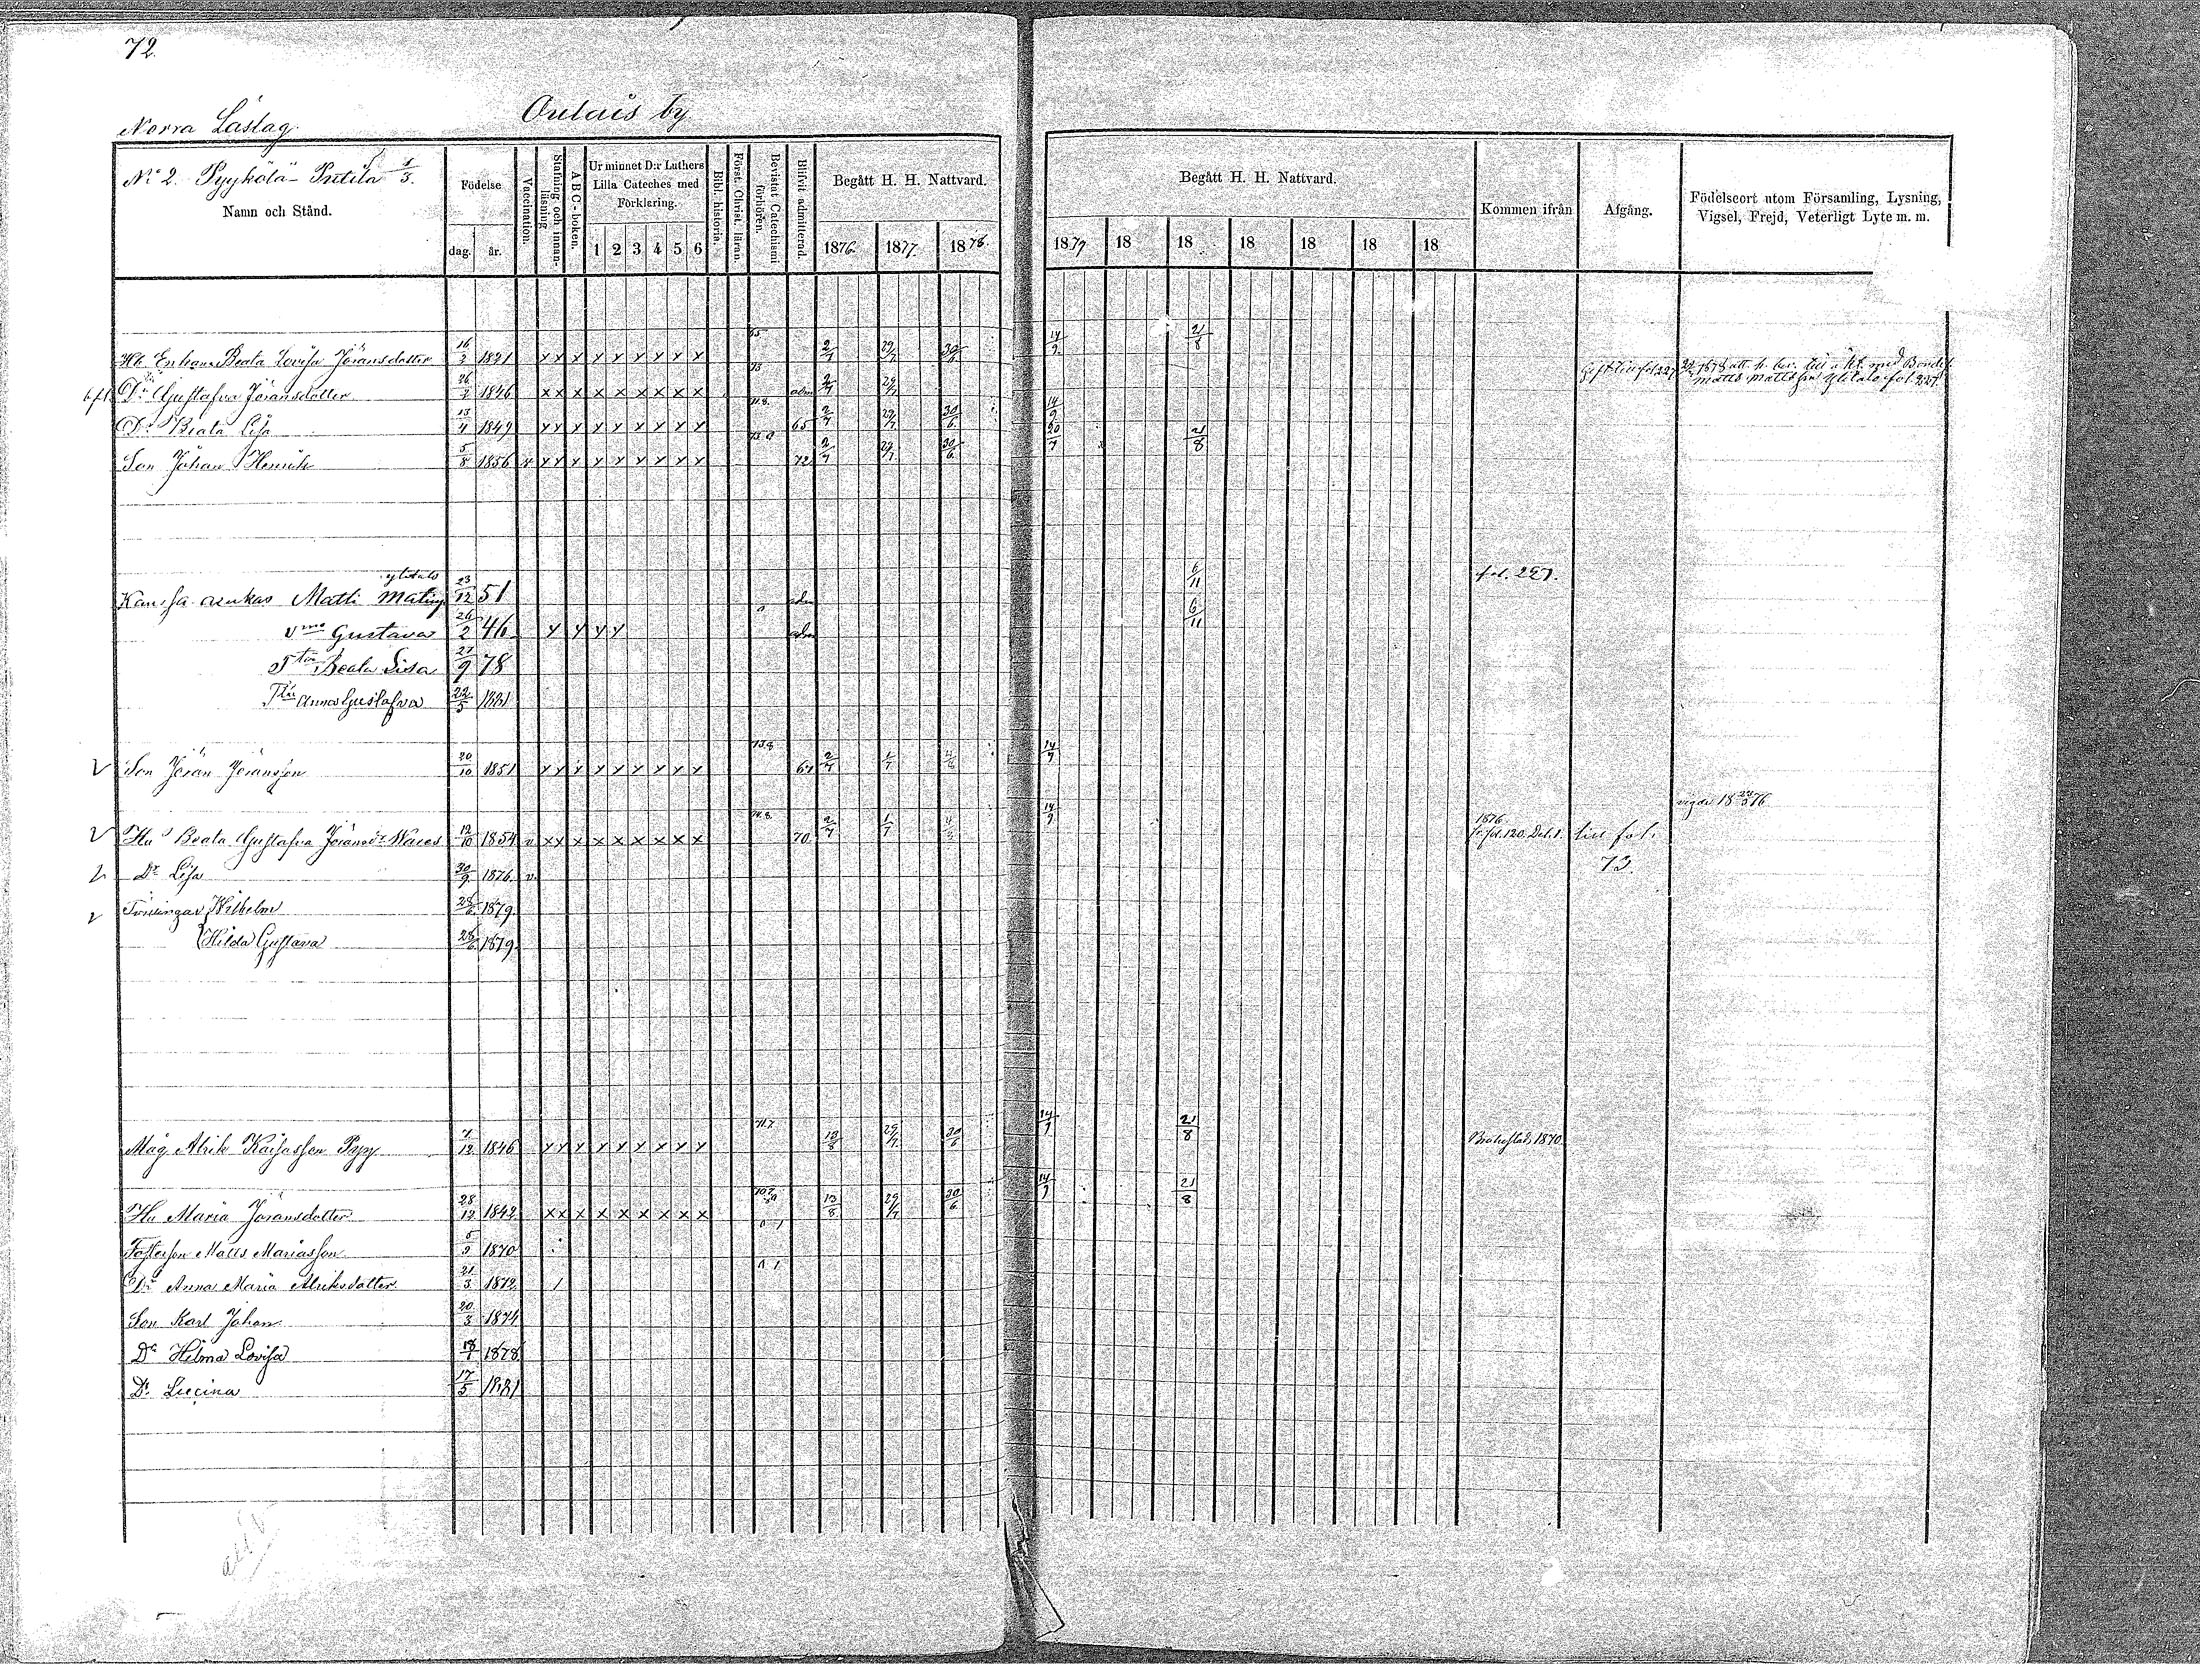 72.
Norra Låstag
Oulais by
No 2. Pyykölä-Intila 1/3.
Namn och Stånd.
Födelse
dag. år.
Vaccination.
Stafning och innanläsning
A B C-boken.
Ur minnet D:r Luthers Lilla Cateches med Förklaring.
1 2 3 4 5 6
Bibl. historia.
Först. Christ. läran.
Bevistat Catechismi förhören.
Blifvit admitterad.
Begått H. H. Nattvard.
1876. 1877. 1878.
Begått H. H. Nattvard.
1879 18 18 18 18 18 18
Kommen ifrån
Afgång.
Födelseort utom Församling, Lysning, Vigsel, Frejd, Veterligt Lyte m. m.
Hb. Enkan Beata Lovisa Jöransdotter 16/2 1821 y y y y y y y y y 2/7 29/7 30/6 14/9 21/8
Dr Gustafva Jöransdotter 26/2 1846 x x x x x x x x x adm 2/7 29/7 Gift till fol 227
Dr Beata Lisa 13/11 1849 y y y y y y y y y 65 2/7 29/7 30/6 14/9
Son Johan Henrik 5/8 1856 v y y y y y y y y y 72 2/7 29/7 30/6 20/7 21/8
Kanssa asukas Matti Matinp. ylitalo 23/12 51 adm 6/11 fol. 227.
vmo Gustava 26/2 46 y y y y adm 6/11
Ttär Beata Lisa 27/9 78
Ttär Anna Gustafva 22/5 1881
Son Jöran Jöransson 20/10 1851 y y y y y y y y y 67 2/7 1/7 14/7
Hu Beata Gustafva Jöransdr Wares 12/10 1854 v x x x x x x x x x 70 2/7 1/7 14/7 1876 fr. fol. 120. Del. 1. till fol. 73. vigde 18 24/3 76
Dr Lisa 30/9 1876 v.
Tvillingar Wilhelm 28/6 1879.
Hilda Gustava 28/6 1879.
Måg Alrik Kaisasson Pypy 7/12 1846 y y y y y y y y y 13/8 29/7 30/6 14/7 21/8 Brahestad 1870
Hu Maria Jöransdotter 28/12 1842 x x x x x x x x x 13/8 29/7 30/6 14/7 21/8
Fosterson Matts Mariasson 5/3 1870
Dr Anna Maria Alriksdotter 21/3 1872
Son Karl Johan 20/3 1874
Dr Hilma Lovisa 18/1 1878
Dr Lucina 17/5 1881